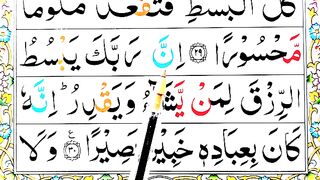 كُلَّ الْبَسْطِ فَتَقْعُدَ مَلُوْمًا
مَّحْسُوْرًا ﴿۲۹﴾ اِنَّ رَبَّكَ يَبْسُطُ
الرِّزْقَ لِمَنْ يَّشَآءُ وَيَقْدِرُ ؕ اِنَّهٗ
كَانَ بِعِبَادِهٖ خَبِيْرًۢا بَصِيْرًا ﴿۳۰﴾ وَلَا